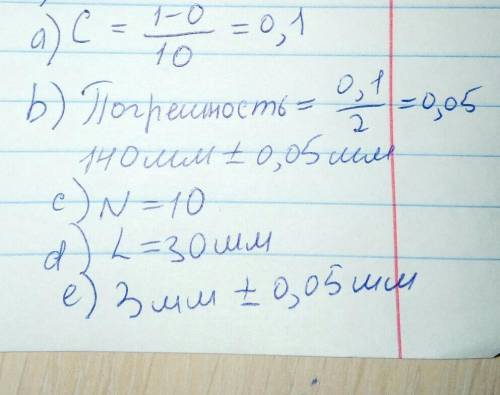 a) C = 1-0/10 = 0,1
b) Погрешность = 0,1/2 = 0,05
140мм ± 0,05мм
c) N = 10
d) L = 30мм
e) 3мм ± 0,05мм